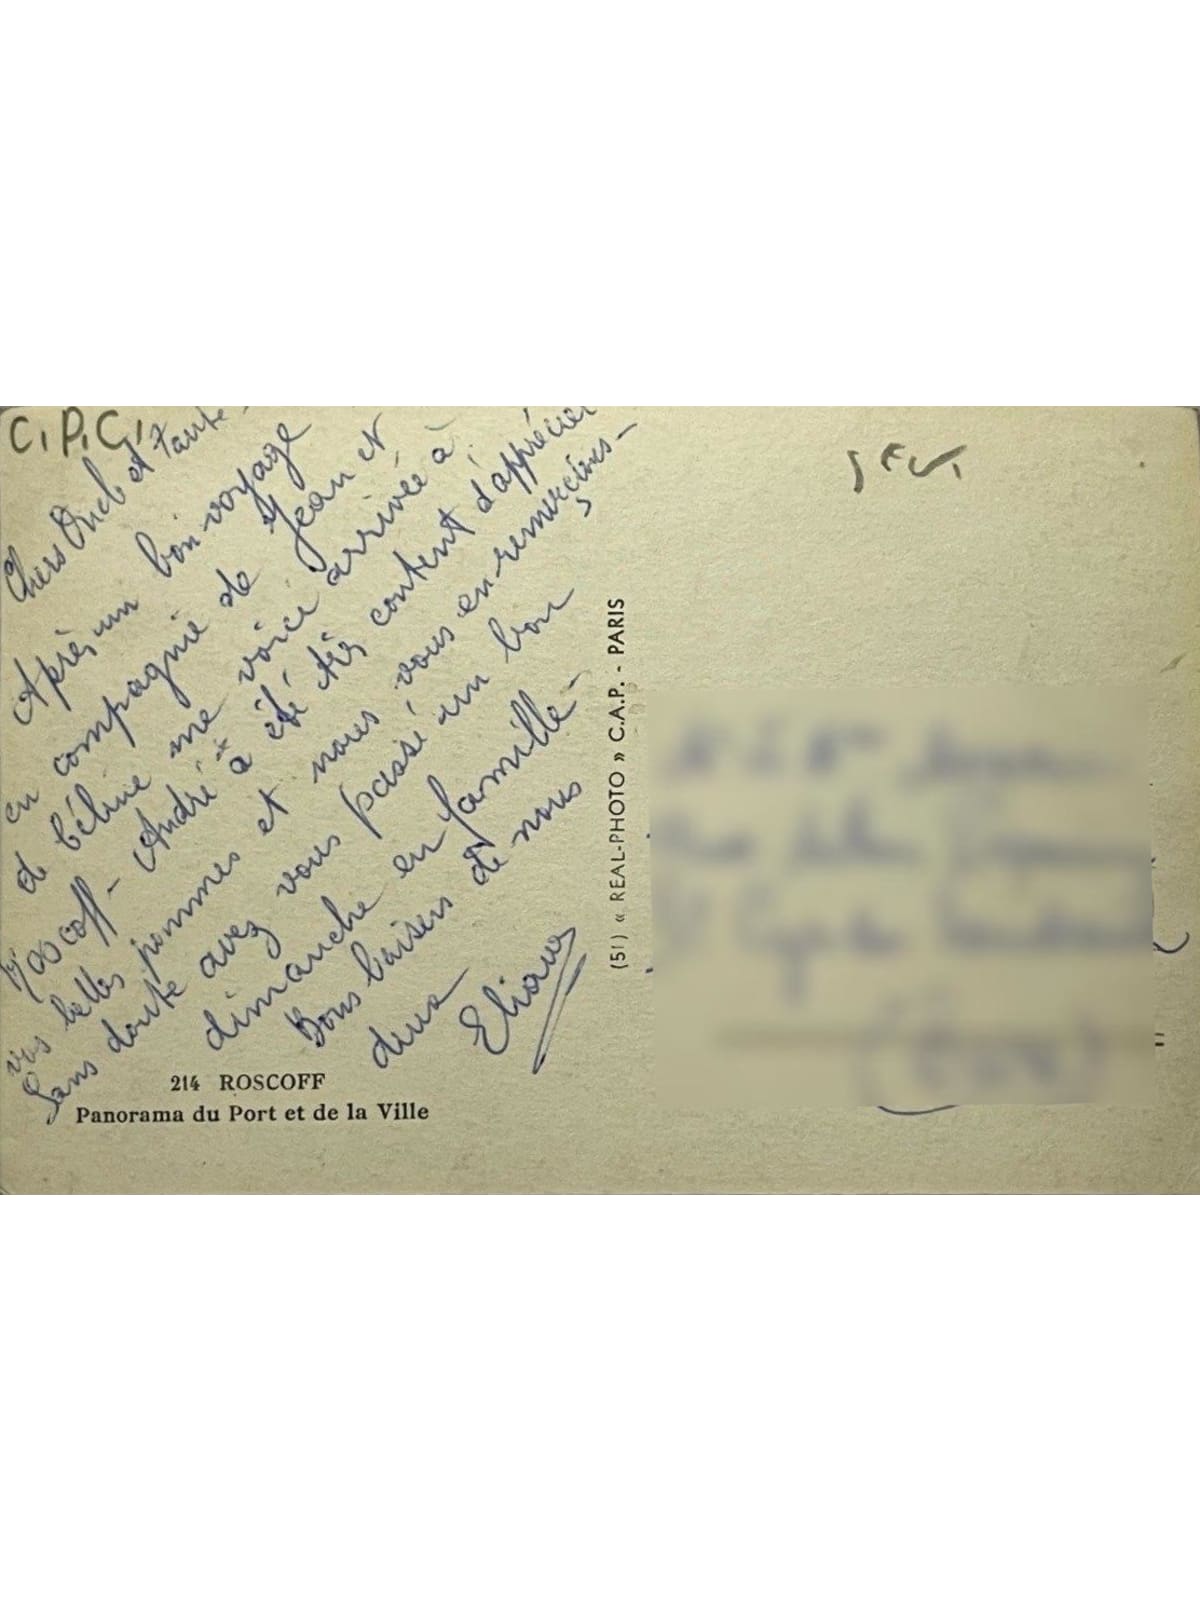 C.P.C.
Chers Oncle et Tante -
Après un bon voyage
en compagnie de Jean et
et Céline me voici arrivée à
Roscoff - André à été très content d'apprécier
vos belles pommes et nous vous en remercions -
Sans doute avez vous passé un bon
dimanche en famille -
Bons baisers de nous
deux
Eliane
214 ROSCOFF
Panorama du Port et de la Ville
(51) « REAL-PHOTO » C.A.P. - PARIS